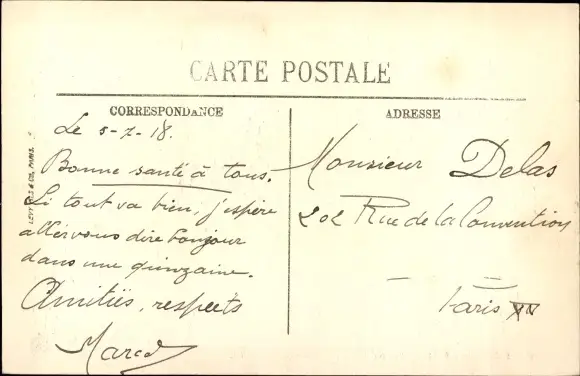 CARTE POSTALE
CORRESPONDANCE
Le 5-7-18.
Bonne santé à tous.
Si tout va bien, j'espère
aller vous dire bonjour
dans une quinzaine.
Amitiés, respects
Marcel
ADRESSE
Monsieur Delas
202 Rue de la Convention
Paris XV
PARIS.